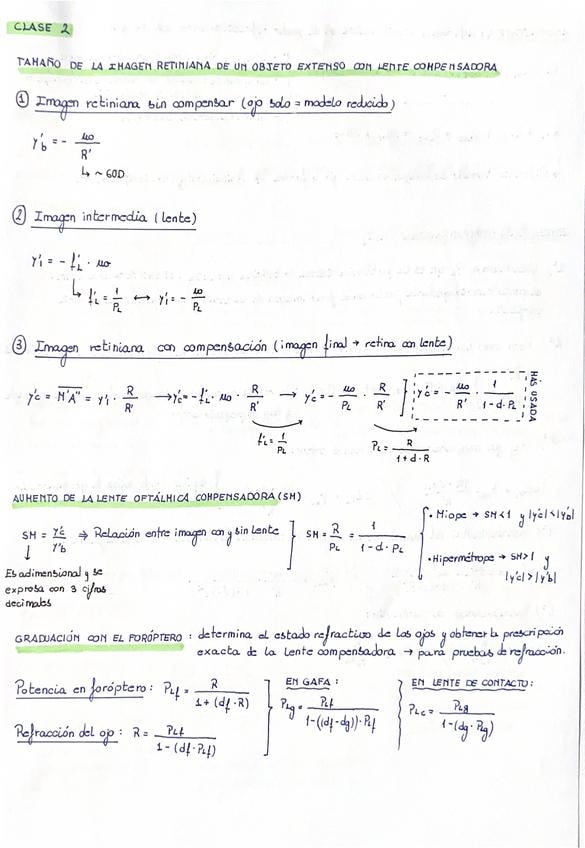 CLASE 2
TAMAÑO DE LA IMAGEN RETINIANA DE UN OBJETO EXTENSO CON LENTE COMPENSADORA
① Imagen retiniana sin compensar (ojo solo = modelo reducido)
y'b = - uo / R'
↳ ~ 60D
② Imagen intermedia (lente)
y'1 = - f'L · uo
↳ f'L = 1 / PL ↔ y'1 = - uo / PL
③ Imagen retiniana con compensación (imagen final → retina con lente)
y'c = M'A'' = y'1 · R / R' → y'c = - f'L · uo · R / R' → y'c = - uo / PL · R / R' ] y'c = - uo / R' · 1 / 1 - d · PL
MÁS USADA
f'L = 1 / PL
PL = R / 1 + d · R
AUMENTO DE LA LENTE OFTÁLMICA COMPENSADORA (SM)
SM = y'c / y'b ⇒ Relación entre imagen con y sin lente ] SM = R / PL = 1 / 1 - d · PL
• Miope → SM < 1 y |y'c| < |y'b|
• Hipermétrope → SM > 1 y
|y'c| > |y'b|
↓
Es adimensional y se
expresa con 3 cifras
decimales
GRADUACIÓN CON EL FORÓPTERO : determina el estado refractivo de los ojos y obtener la prescripción
exacta de la lente compensadora → para pruebas de refracción.
Potencia en foróptero : PLf = R / 1 + (df · R)
Refracción del ojo : R = PLf / 1 - (df · PLf)
EN GAFA :
PLg = PLf / 1 - ((df - dg)) · PLf
EN LENTE DE CONTACTO :
PLc = PLg / 1 - (dg · PLg)